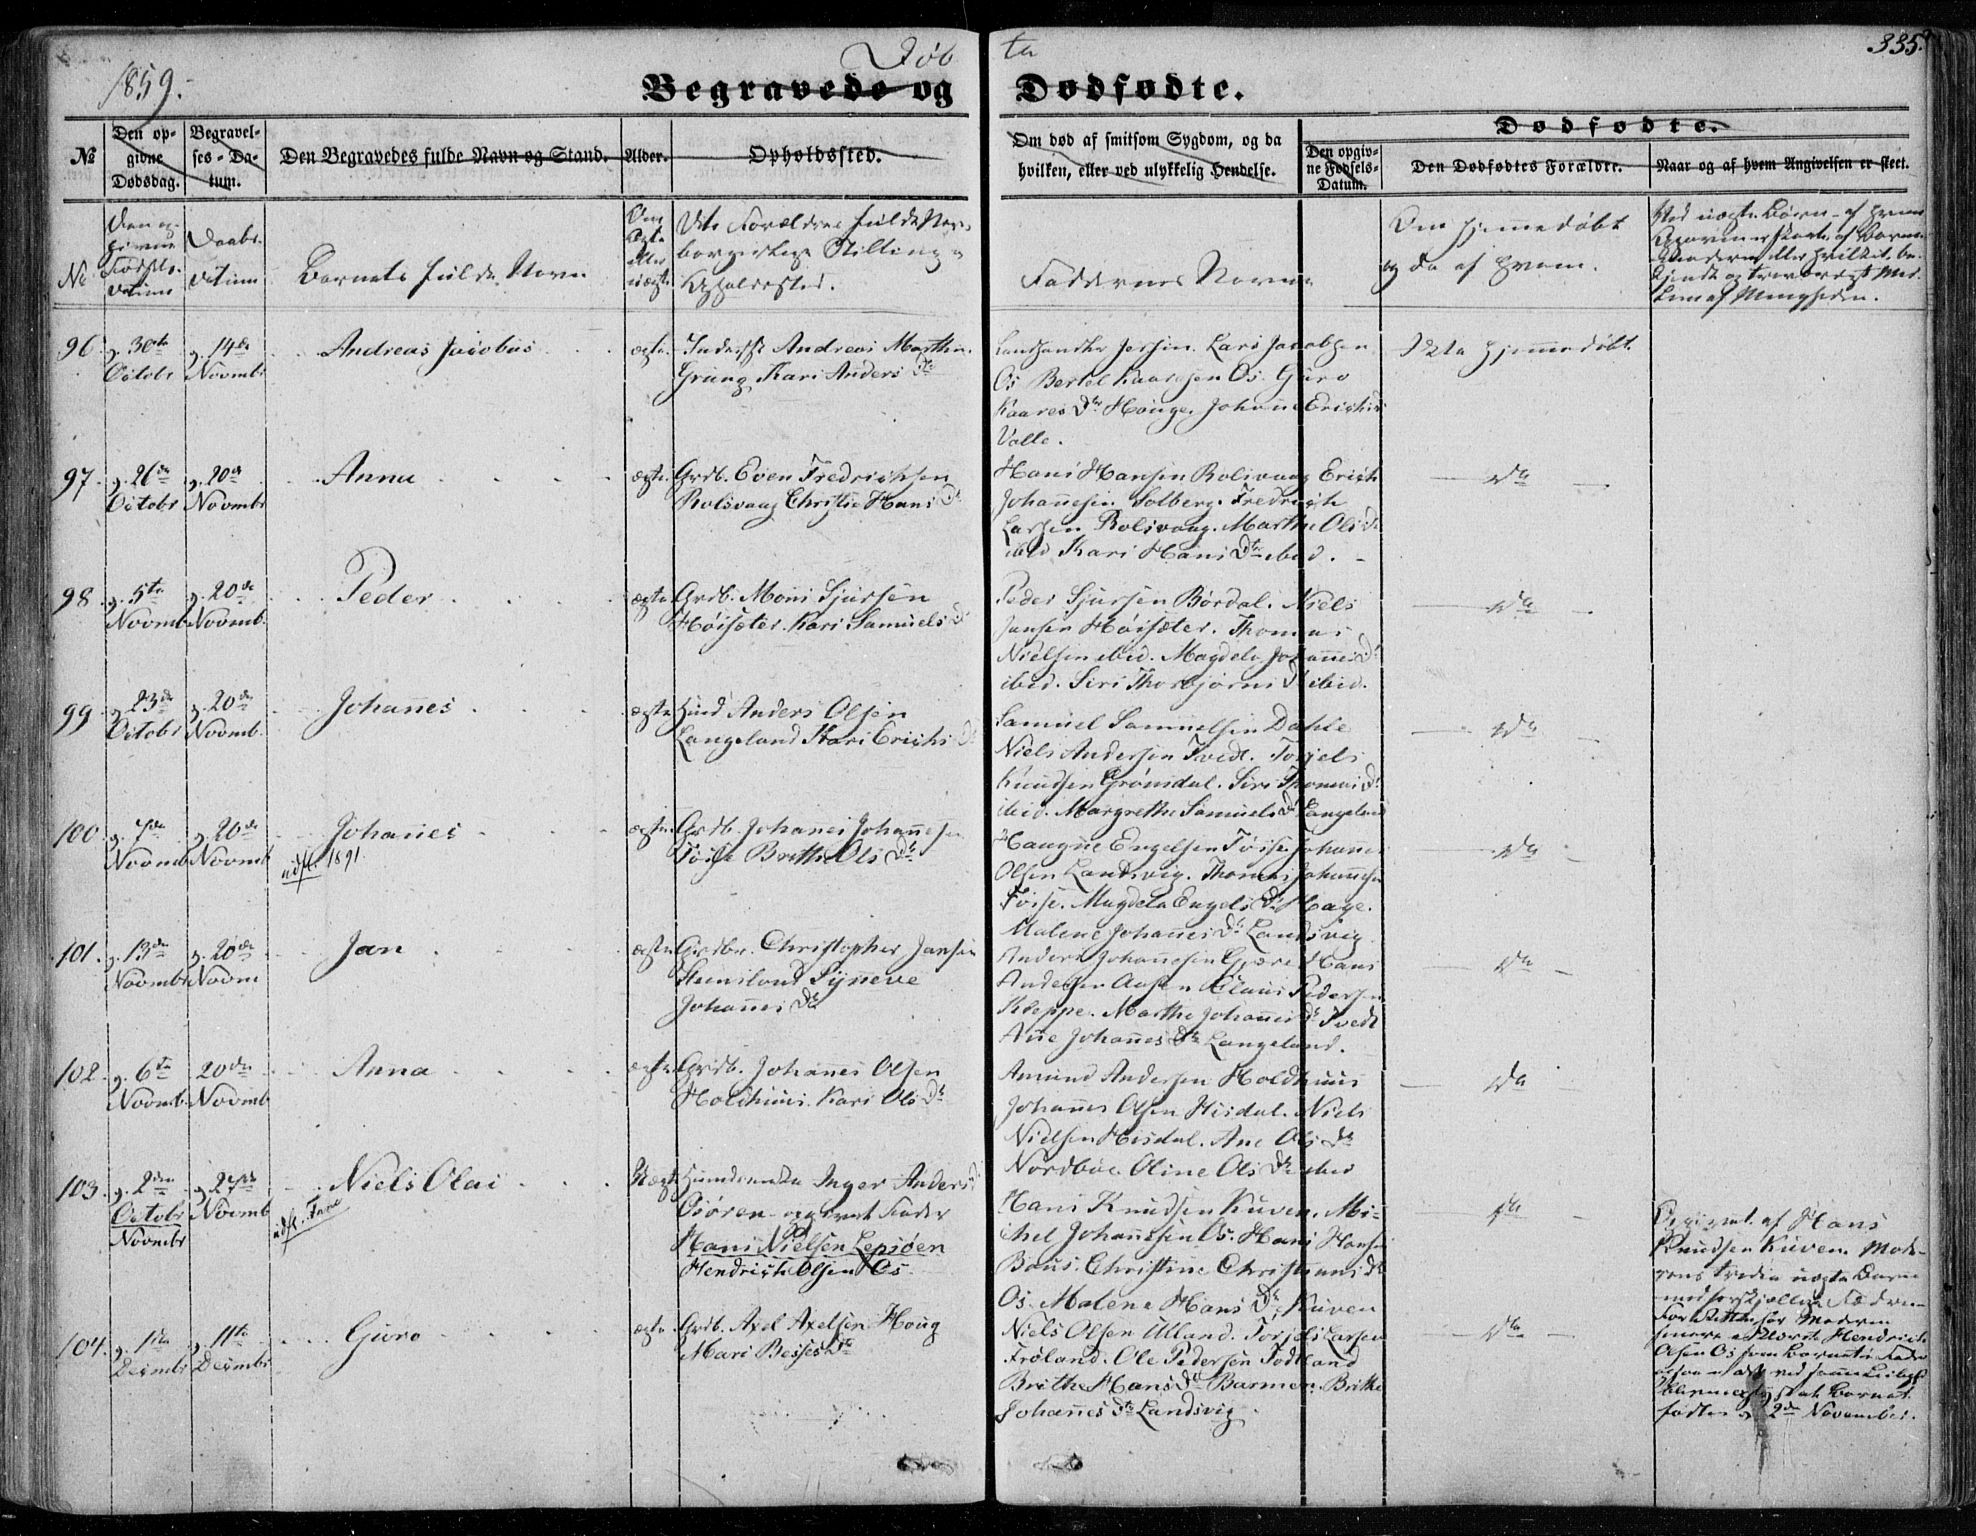 1859.
Døb
te
335.
Begravede og
Dødfødte.
№
Den op-
givne
Dødsdag.
Begravel-
ses-Da-
tum.
Den Begravedes fulde Navn og Stand.
Alder.
Opholdssted.
Om død af smitsom Sygdom, og da
hvilken, eller ved ulykkelig Hendelse.
Dødfødte.
Den opgiv-
ne Fødsels-
Datum.
Den Dødfødtes Forældre.
Naar og af hvem Angivelsen er skeet.
No
Den op-
givne
Fødsels-
datum
Daabs-
datum
Barnets fulde Navn
Om
ægte
eller
uægte
Dets Forældres fulde Navn
borgerlige Stilling og
Opholdssted.
Faddernes Navne
Om hjemmedøbt
og da af hvem.
96.
g. 30te
Octobr
g. 14de
Novmbr
Andreas Jacobus
ægte
Inderst Andreas Marthin.
Grung Kari Anders Dr
Landhandler Jersin. Lars Jacobsen
Os Bertel Kaaresen Os. Guro
Kaares Dr Houge. Johanne Erichs
Valle.
Ikke hjemmedøbt
97.
g. 26de
Octobr
g. 20de
Novmbr
Anna
ægte
Grdb. Even Fredrichsen
Rolsvaag Christine Hans Dr
Hans Hansen Rolsvaag Erich
Johannesen Solberg. Fredrich
Larsen Rolsvaag. Marthe Ols Dr
ibid Kari Hans Dtr ibid.
Do
98.
g. 5te
Novmb
g. 20de
Novmb.
Peder
ægte
Grdb. Mons Sjursen
Høisæter. Kari Samuels Dr
Peder Sjursen Børdal. Niels
Jansen Høisæter. Thomas
Nielsen ibid. Magdela Johannes Dr
ibid. Siri Thorbjørns Dr ibid.
Do
99.
g. 23de
Octobr
g. 20de
Novmb.
Johannes
ægte
Huusmd Anders Olsen
Langeland Kari Erichs Dr
Samuel Samuelsen Dahle
Niels Andersen Tvedt. Torjels
Knudsen Grønsdal. Siri Thomas Dr
ibid. Margrethe Samuels Dr Langeland
Do
100.
g. 7de
Novmb
g. 20de
Novmb
Johannes
udfl. 1891.
ægte
Grdb. Johannes Johannesen
Tøsse Brithe Ols Dr
Haagne Engelsen Tøsse Johannes
Olsen Landsvig. Thomas Johannesen
Tøsse. Magdela Engels Dr Hage.
Malene Johannes Dr Landsvig
Do
101.
g. 13de
Novmbr
g. 20de
Novm
Jan
ægte
Grdbr. Christopher Jansen
Hemsland Synneve
Johannes Dr
Anders Johannesen Gjære Hans
Andersen Aasen Claus Pedersen
Kleppe. Marthe Johannes Dr Tvedt
Ane Johannes Dr Langeland.
Do
102.
g. 6te
Novmb
20de
Novmb
Anna
ægte
Grdb. Johannes Olsen
Holdhuus. Kari Ols Dr
Amund Andersen Holdhuus
Johannes Olsen Hisdal. Niels
Nielsen Hisdal. Ane Ols Dr
Nordbøe Oline Ols Dr ibid
Do
103.
g. 2den
Octobr
Novmbr
g. 27de
Novmb
Niels Olai
udfl. Fane
Uægte
Inger Anders Dr
Hans Nielsen Lepsøen
Hendrich Olsen Os.
Hans Knudsen Kuven. Mi-
chel Johannesen Os. Hans Hansen
Bous. Christine Christians Dr
Os. Malene Hans Dr Kuven
Do
af Hans
Knudsen Kuven. Mode-
rens tredie uægte Barn
Hendrich
Olsen Os som Barnets Fader
Barnet
fødtes g. 2de November.
104.
g. 1ste
Decmbr
g. 11te
Decmbr
Guro
ægte
Grdb. Axel Axelsen Houg
Mari Besses Dtr
Niels Olsen Ulland. Torjels Larsen
Frøland. Ole Pedersen Todtland
Brithe Hans Dr Barmen. Brithe
Johannes Dr Landsvig.
Do